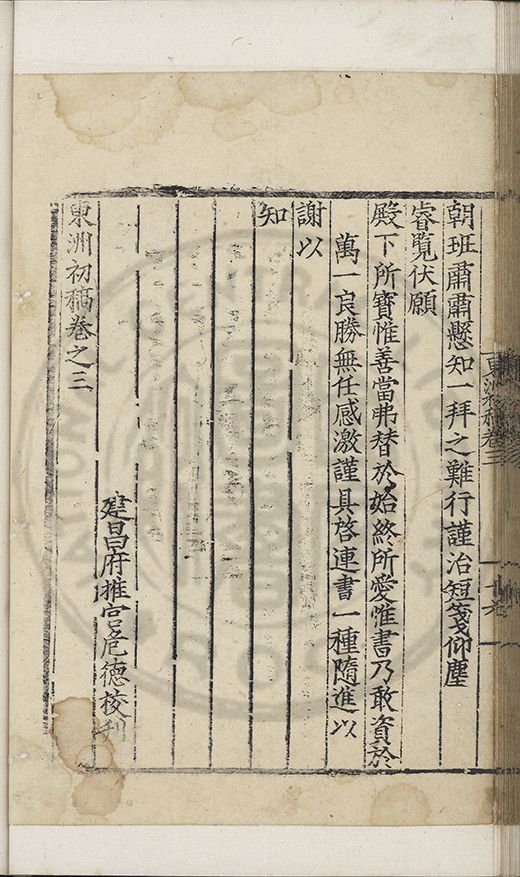 朝班肅肅懸知一拜之難行謹治短箋仰塵
睿覧伏願
殿下所寶惟善當弗替於始終所愛惟書乃敢資於
萬一良勝無任感激謹具啓連書一種隨進以
謝以
知
建昌府推官危德校刊
東洲初稿卷之三